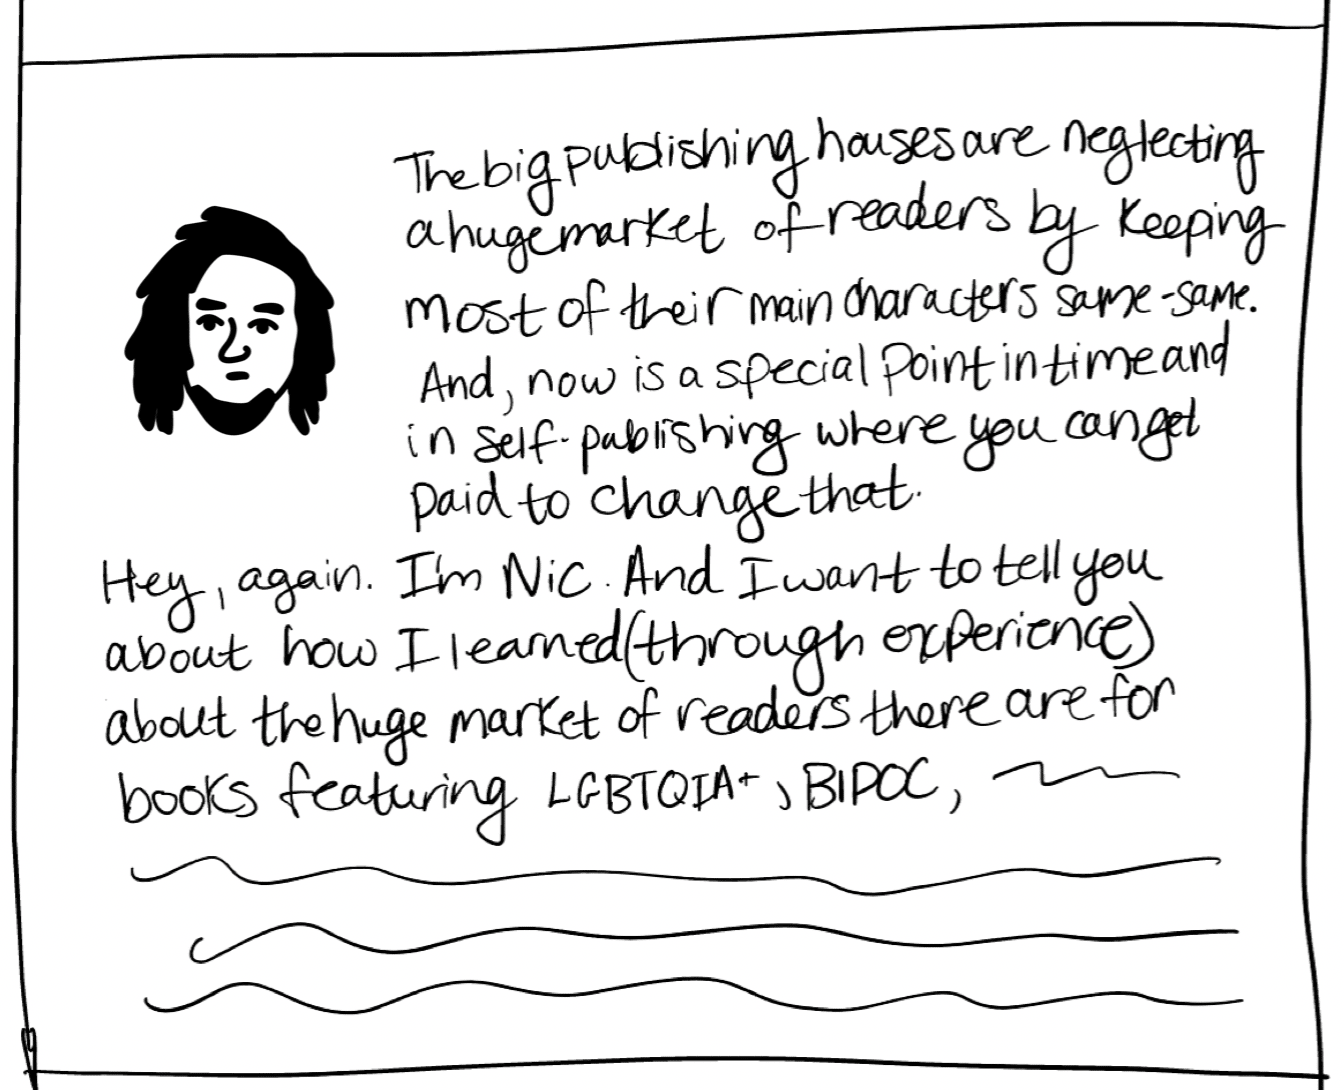 The big publishing houses are neglecting
a huge market of readers by keeping
most of their main characters same-same.
And, now is a special point in time and
in self-publishing where you can get
paid to change that.
Hey, again. I'm Nic. And I want to tell you
about how I learned (through experience)
about the huge market of readers there are for
books featuring LGBTQIA+, BIPOC,